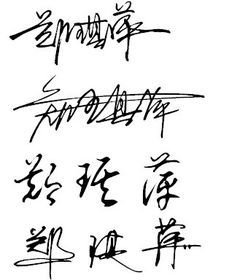 郑琪萍
郑琪萍
郑琪萍
郑琪萍